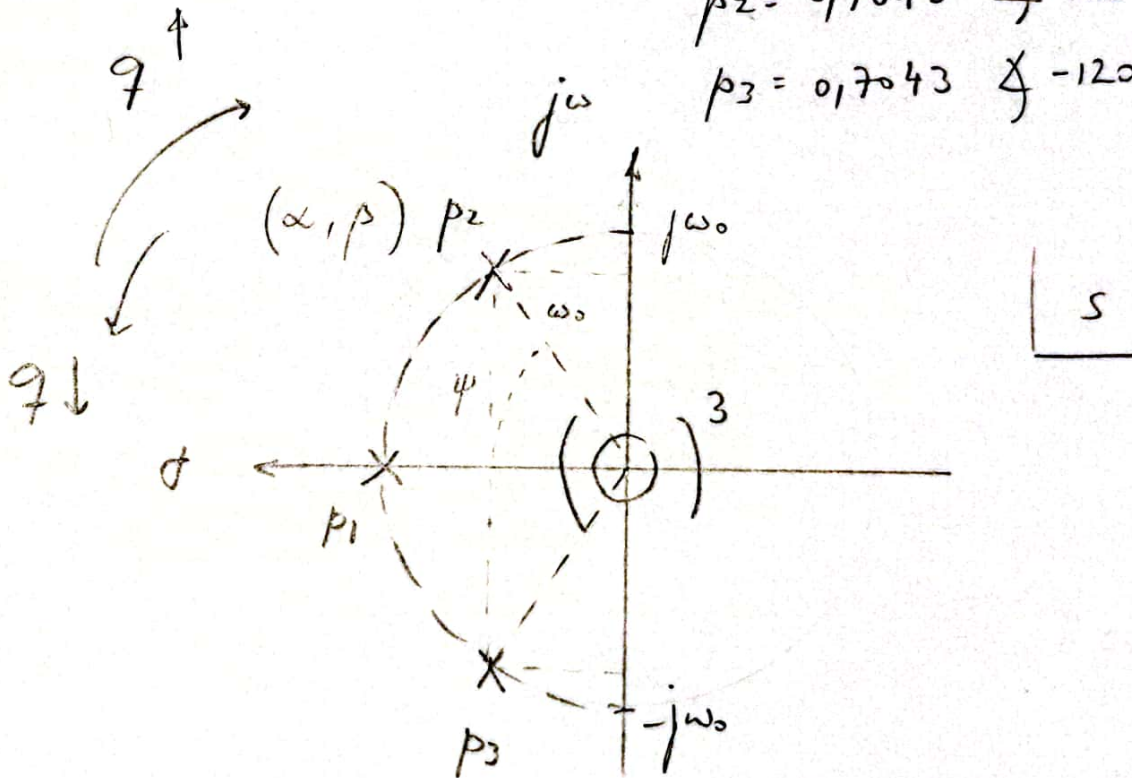 p2 = 0,7043 ∡
p3 = 0,7043 ∡ -120
q ↑
jω
(α, β) p2
jω₀
ω₀
s
q ↓
ψ
( )³
σ
p1
-jω₀
p3